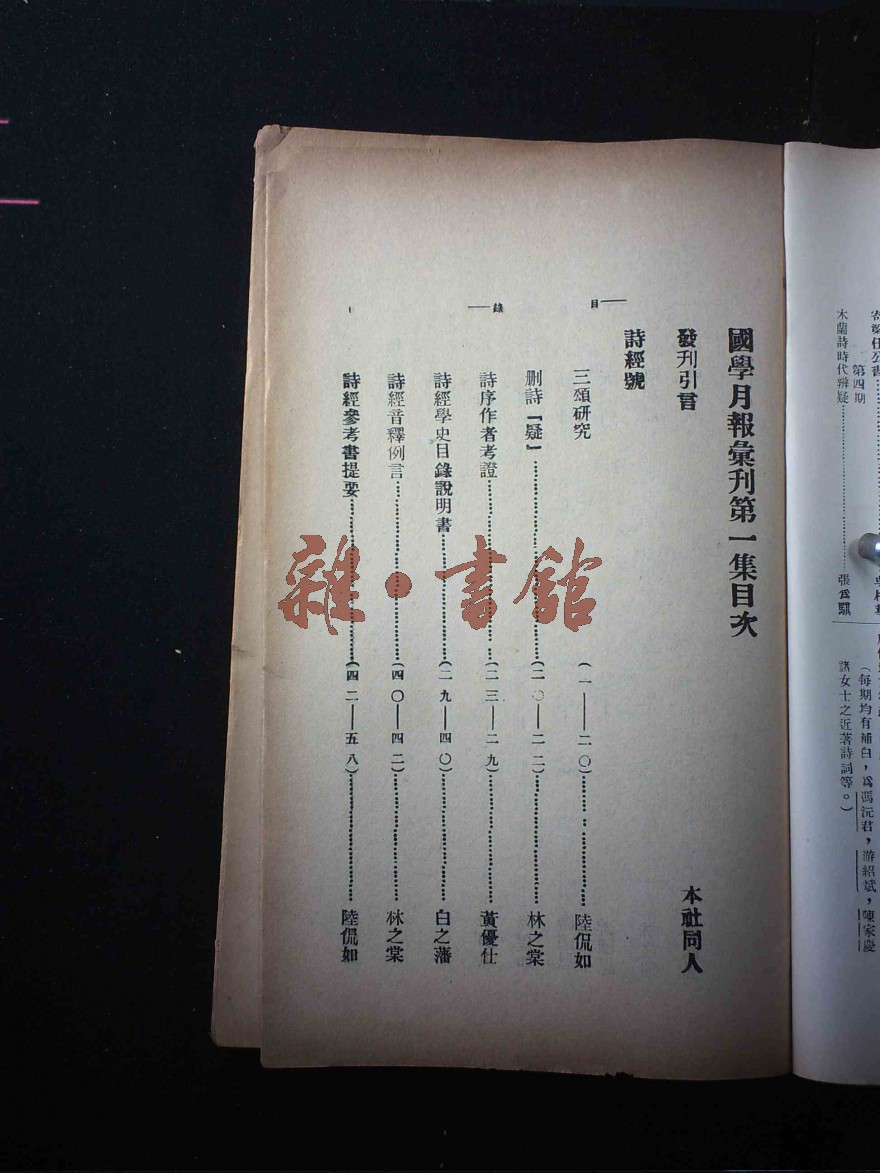 第四期
木蘭詩時代辨疑……張為騏
(每期均有補白,為馮沅君,游紹斌,陳家慶
諸女士之近著詩詞等。)
國學月報彙刊第一集目次
發刊引言 本社同人
詩經號
三頌研究 (一——二〇)……陸侃如
刪詩「疑」……(二〇——二二)……林之棠
詩序作者考證……(二三——二九)……黃優仕
詩經學史目錄說明書……(二九——四〇)……白之藩
詩經音釋例言……(四〇——四二)……林之棠
詩經參考書提要……(四二——五八)……陸侃如
——目
錄——
一
雜·書館